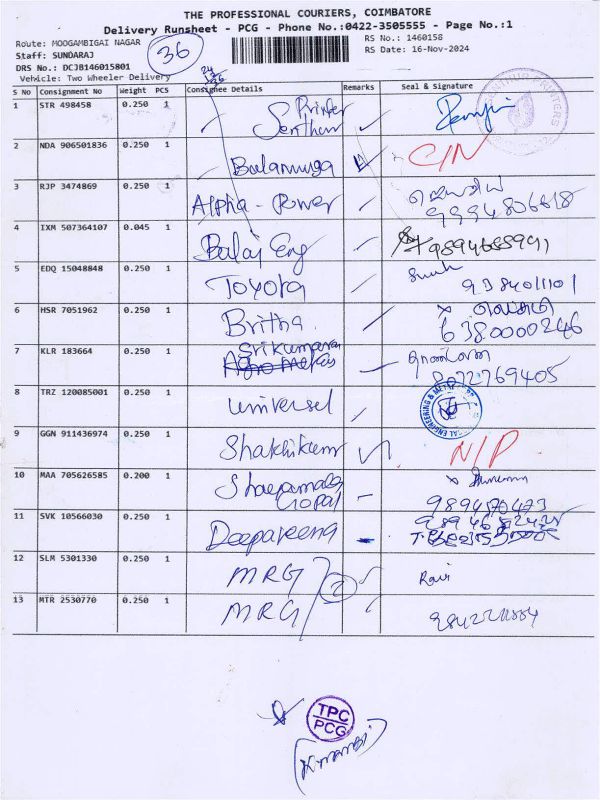 THE PROFESSIONAL COURIERS, COIMBATORE
Delivery Runsheet - PCG - Phone No.:0422-3505555 - Page No.:1
Route: MOOGAMBIGAI NAGAR
RS No.: 1460158
Staff: SUNDARAJ
36
RS Date: 16-Nov-2024
DRS No.: DCJB146015801
Vehicle: Two Wheeler Delivery
S No Consignment No Weight PCS Consignee Details Remarks Seal & Signature
1 STR 498458 0.250 1 Printer
Senthur
2 NDA 906501836 0.250 1 Balamuga C/N
3 RJP 3474869 0.250 1 Alpha - Power
9994806818
4 IXM 507364107 0.045 1 Balaj Eng
5 EDQ 15048848 0.250 1 Toyota 9384011101
6 HSR 7051962 0.250 1 Britha
6380000246
7 KLR 183664 0.250 1 Srikumara
8 TRZ 120085001 0.250 1 universel
9 GGN 911436974 0.250 1 Shakthikum N/P
10 MAA 705626585 0.200 1
Gopal
11 SVK 10566030 0.250 1 Deepaveena
12 SLM 5301330 0.250 1 MRG 2 Ravi
13 MTR 2530770 0.250 1 MRG
TPC
PCG